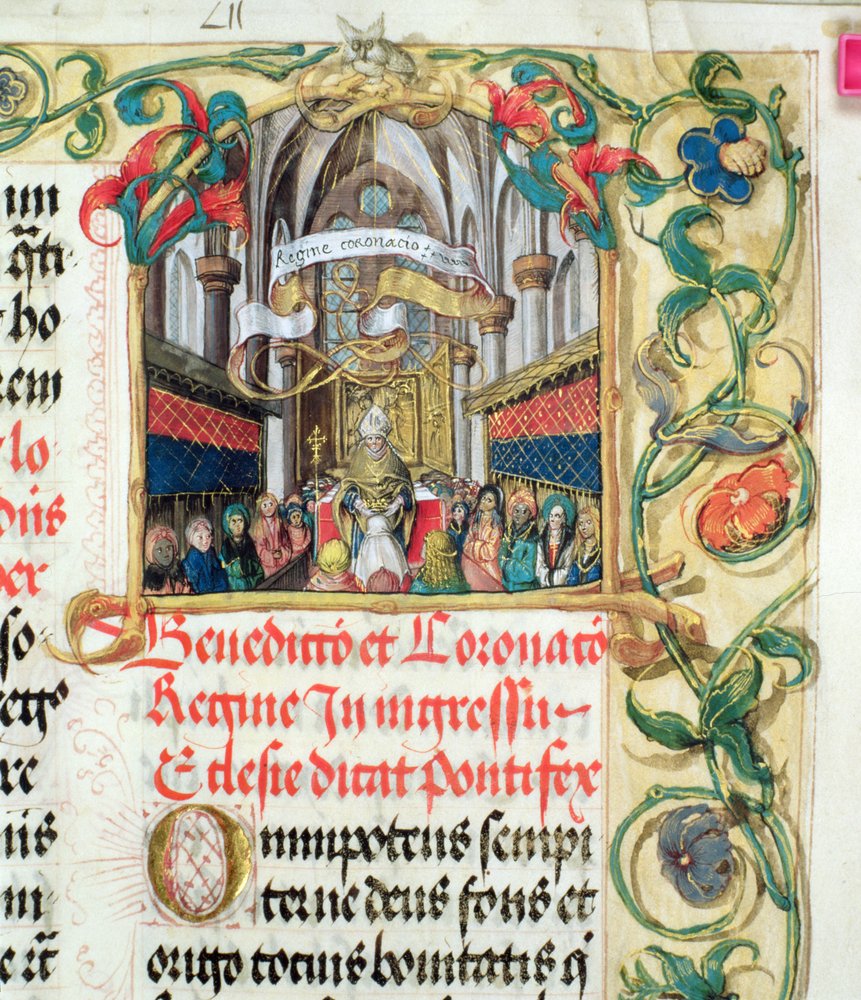 LII
Regine coronacio
un
q̄ti-
ho
rem
lo-
dūs
per
so-
rege
re
Benedictō et Coronatō
Regine In ingressu
Eclesie dicat Pontifex
nis
Omnipotens sempi
ni-
terne deus fons et
origo tocius bonitatis q̇